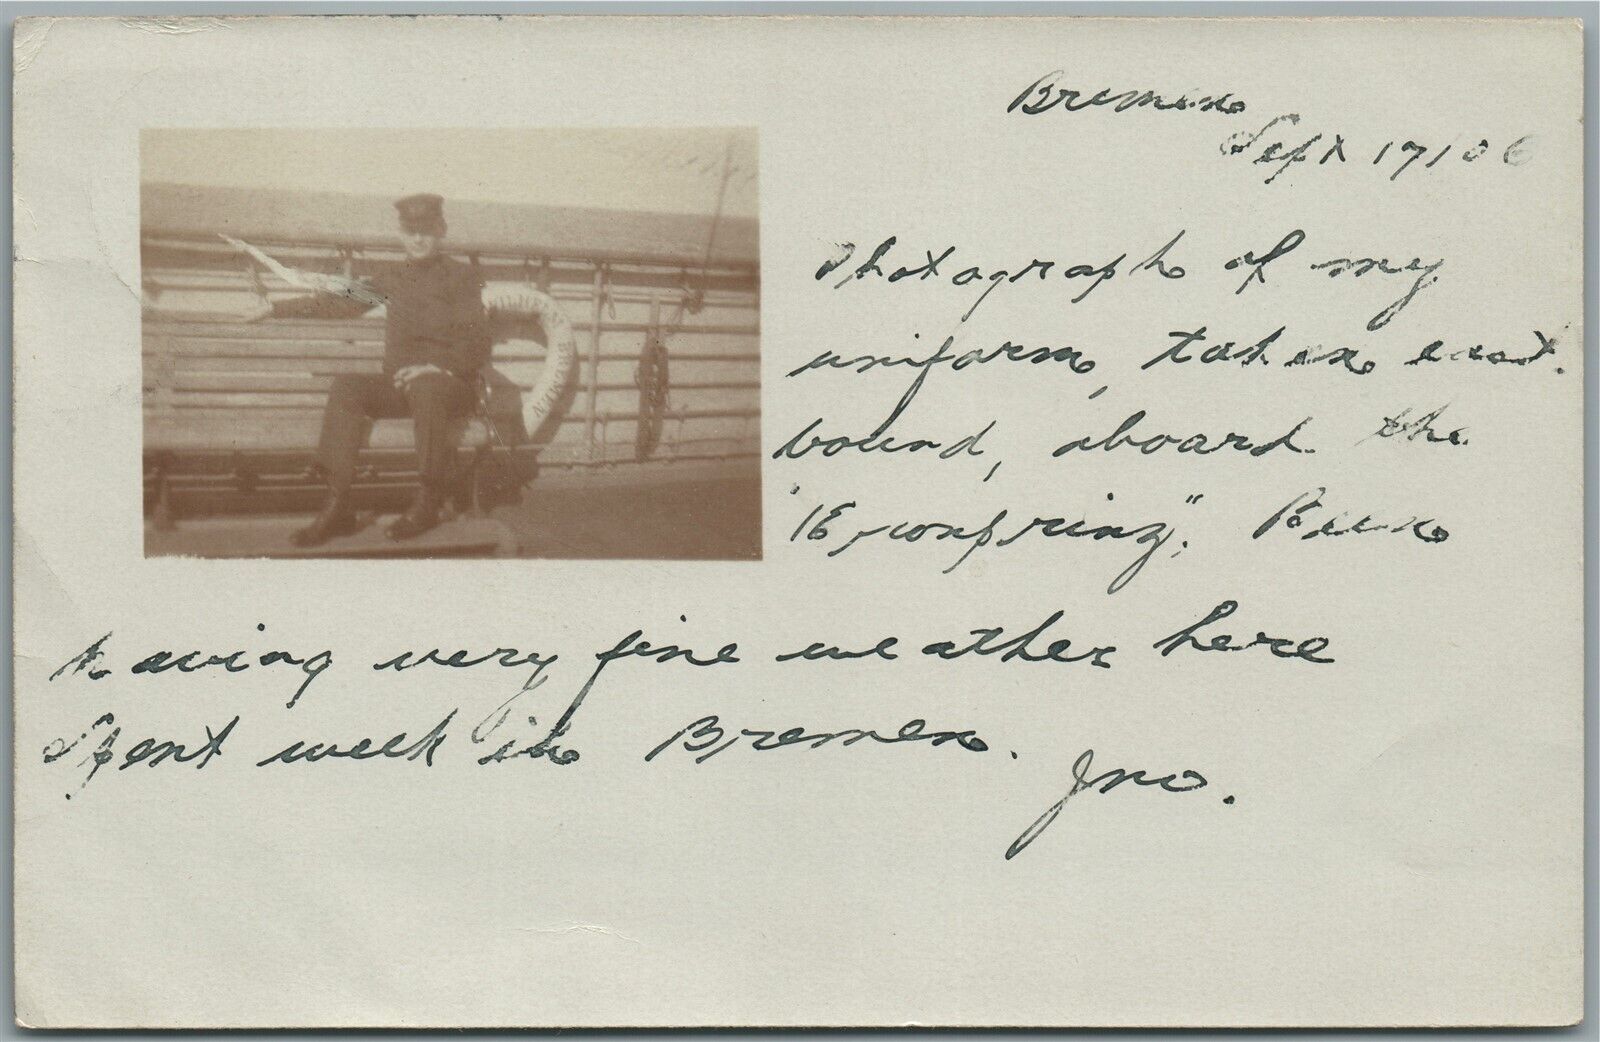 Bremen
Sept 17/06
Photograph of my
uniform, taken east.
bound, aboard the
"Kronprinz". Been
having very fine weather here
Spent week in Bremen.
Jno.
WILHELM BREMEN